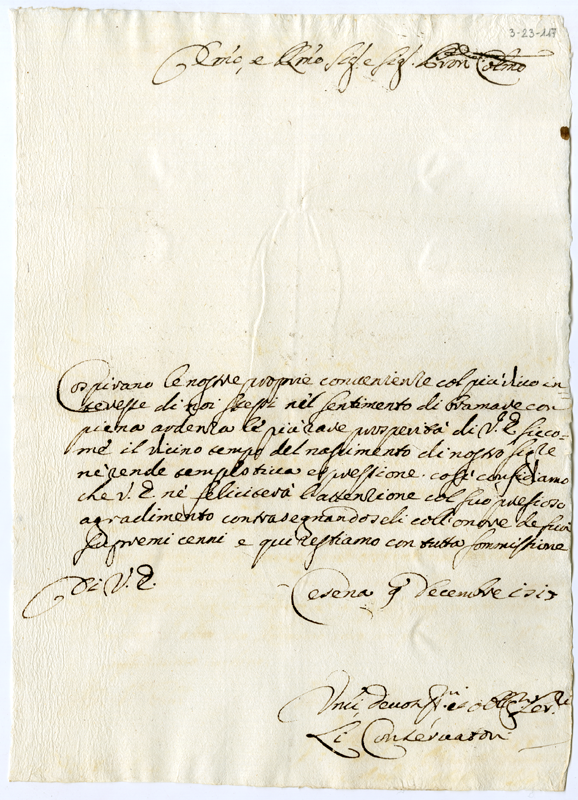 3-23-117
Emo, e Rmo Sig.r e Sig.r Pron Colmo
Cospirano le nostre proprie convenienze col più vivo in-
teresse di noi stessi nel sentimento di bramare con
piena ardenza le più rare prosperità di V.E. sicco-
me il vicino tempo del nascimento di nostro Sigre
ne rende tempestiva espressione. così confidiamo
che V.E. ne feliciterà l'attenzione col suo prezioso
agradimento contrasegnandoseli coll'onore de suoi
supremi cenni e qui restiamo con tutta sommissione
Di V.E. Cesena 9 Decembre 1717
Devon e Obb Ser.ri
Li Conservatori